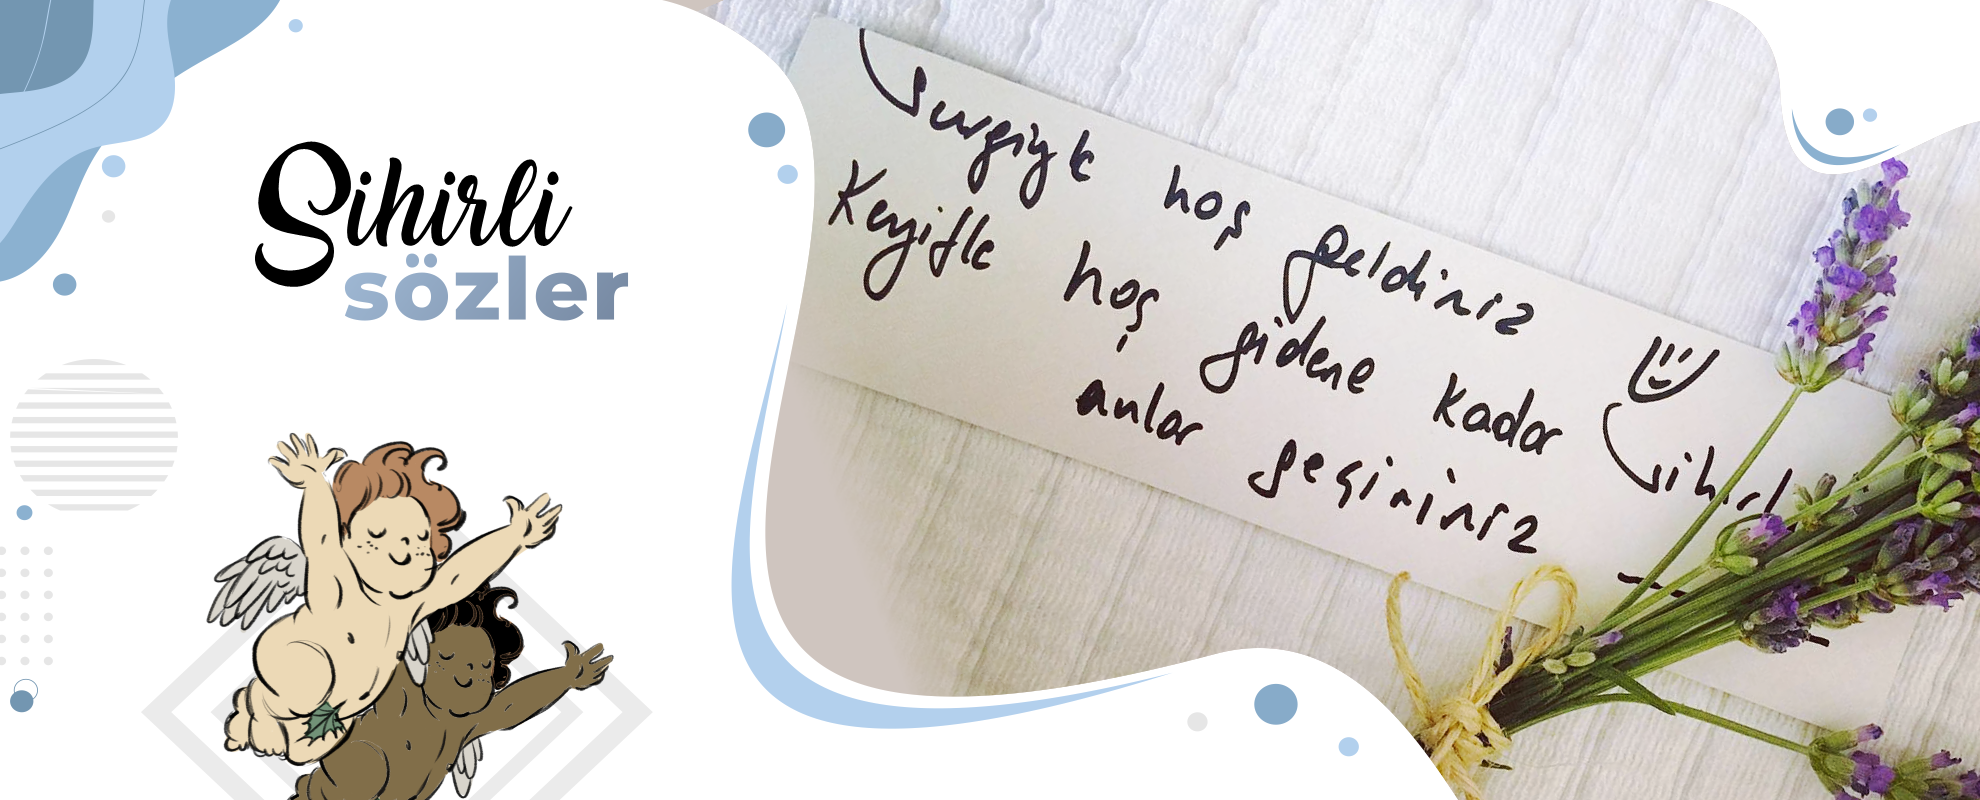 Sihirli
sözler
Sevgiyle hoş geldiniz
Keyifle hoş gidene kadar
anlar geçiriniz
Sihirl